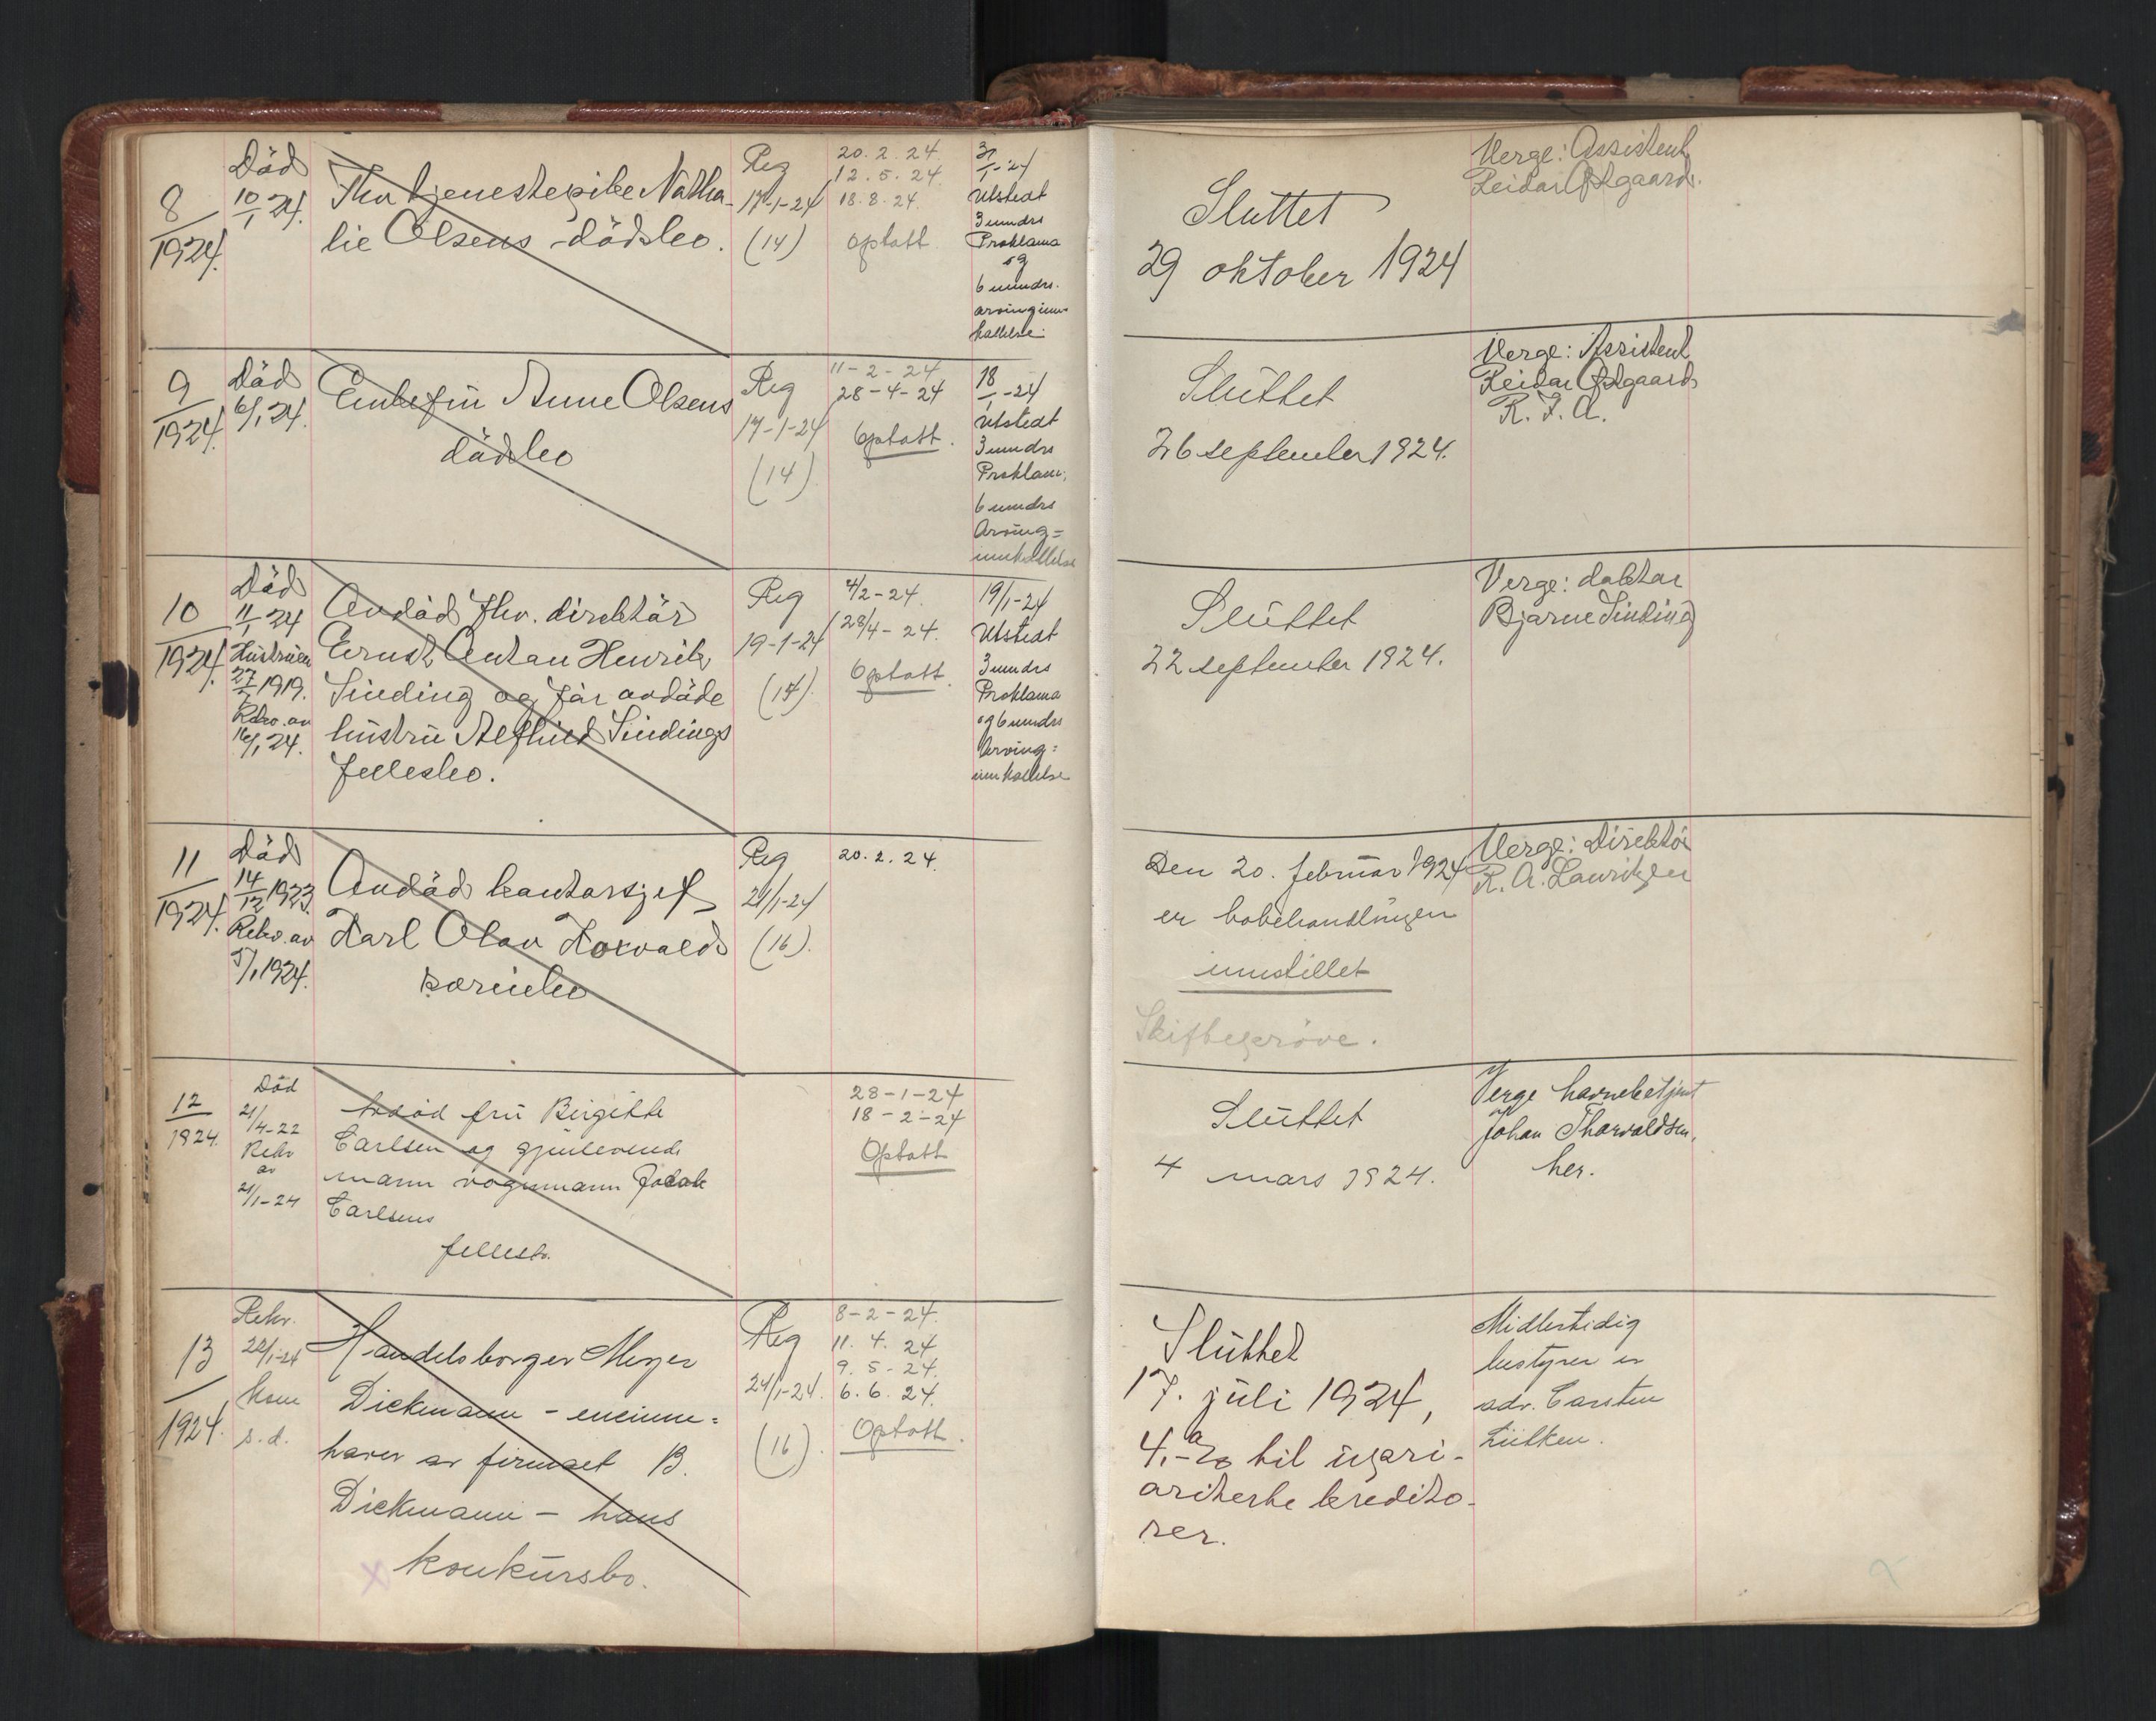 8
1924.
Död
10/1 24.
Fhv tjenestepike Natha-
lie Olsens dödsbo.
Reg
17-1-24
(14)
20. 2. 24.
12. 5. 24.
18. 8. 24.
Optatt
31/1-24
Utstedt
3 mndrs
Proklama
og
6 mndrs.
arvinginn-
kallelse.
Sluttet
29 oktober 1924
Verge: Assistent
Reidar
9
1924.
Död
6/1 24.
Enkefru Anne Olsens
dödsbo
Reg
17-1-24
(14)
11-2-24
28-4-24
Optatt.
18/1-24
Utstedt
3 mndrs
Proklam.
6 mndrs
Arving=
innkallelse
Sluttet
26 september 1924.
Verge: Assistent
Reidar
R. F. A.
10
1924.
Död
11/1 24
Hustruen
1919.
Rekv. av
16/1 24.
Avdöd fhv. direktör
Ernst Anton Henrik
Sinding og för avdöde
hustru Sindings
fellesbo.
Reg
19-1-24
(14).
4/2-24.
28/4-24.
Optatt.
19/1-24
Utstedt
3 mndrs
Proklama
og 6 mndrs
Arving=
innkallelse
Sluttet
22 september 1924.
Verge: doktor
Bjarne Sinding
11
1924.
Död
14/12 1923.
Rekv. av
5/1 1924.
Avdöd kontorsjef
Karl Olav Horvalds
særiebo
Reg
21/1-24
(16).
20. 2. 24.
Den 20. februar 1924
er bobehandlingen
innstillet
Skifteprøve.
Verge: Direktör
R. A. Lauritzen
12
1924.
Död
21/4-22
Rekv
av
21/1-24
Avdöd fru Birgitte
Carlsen og gjenlevende
mann vognmann Jakob
Carlsens
fellesb.
28-1-24
18-2-24
Optatt
Sluttet
4 mars 1924.
Verge havnebetjent
Johan Thorvaldsen,
her.
13
1924.
Rekv.
22/1-24
Kom
s.d.
Handelsborger Meyer
Dickmann - eneinne=
haver av firmaet B.
Dickmann - hans
x konkursbo.
Reg
24/1-24.
(16).
8-2-24.
11. 4. 24
9. 5-24.
6. 6. 24.
Optatt.
Sluttet
17. juli 1924,
4,- % til upri-
oriterte kredito-
rer.
Midlertidig
bestyrer er
adv. Carsten
Lütken.